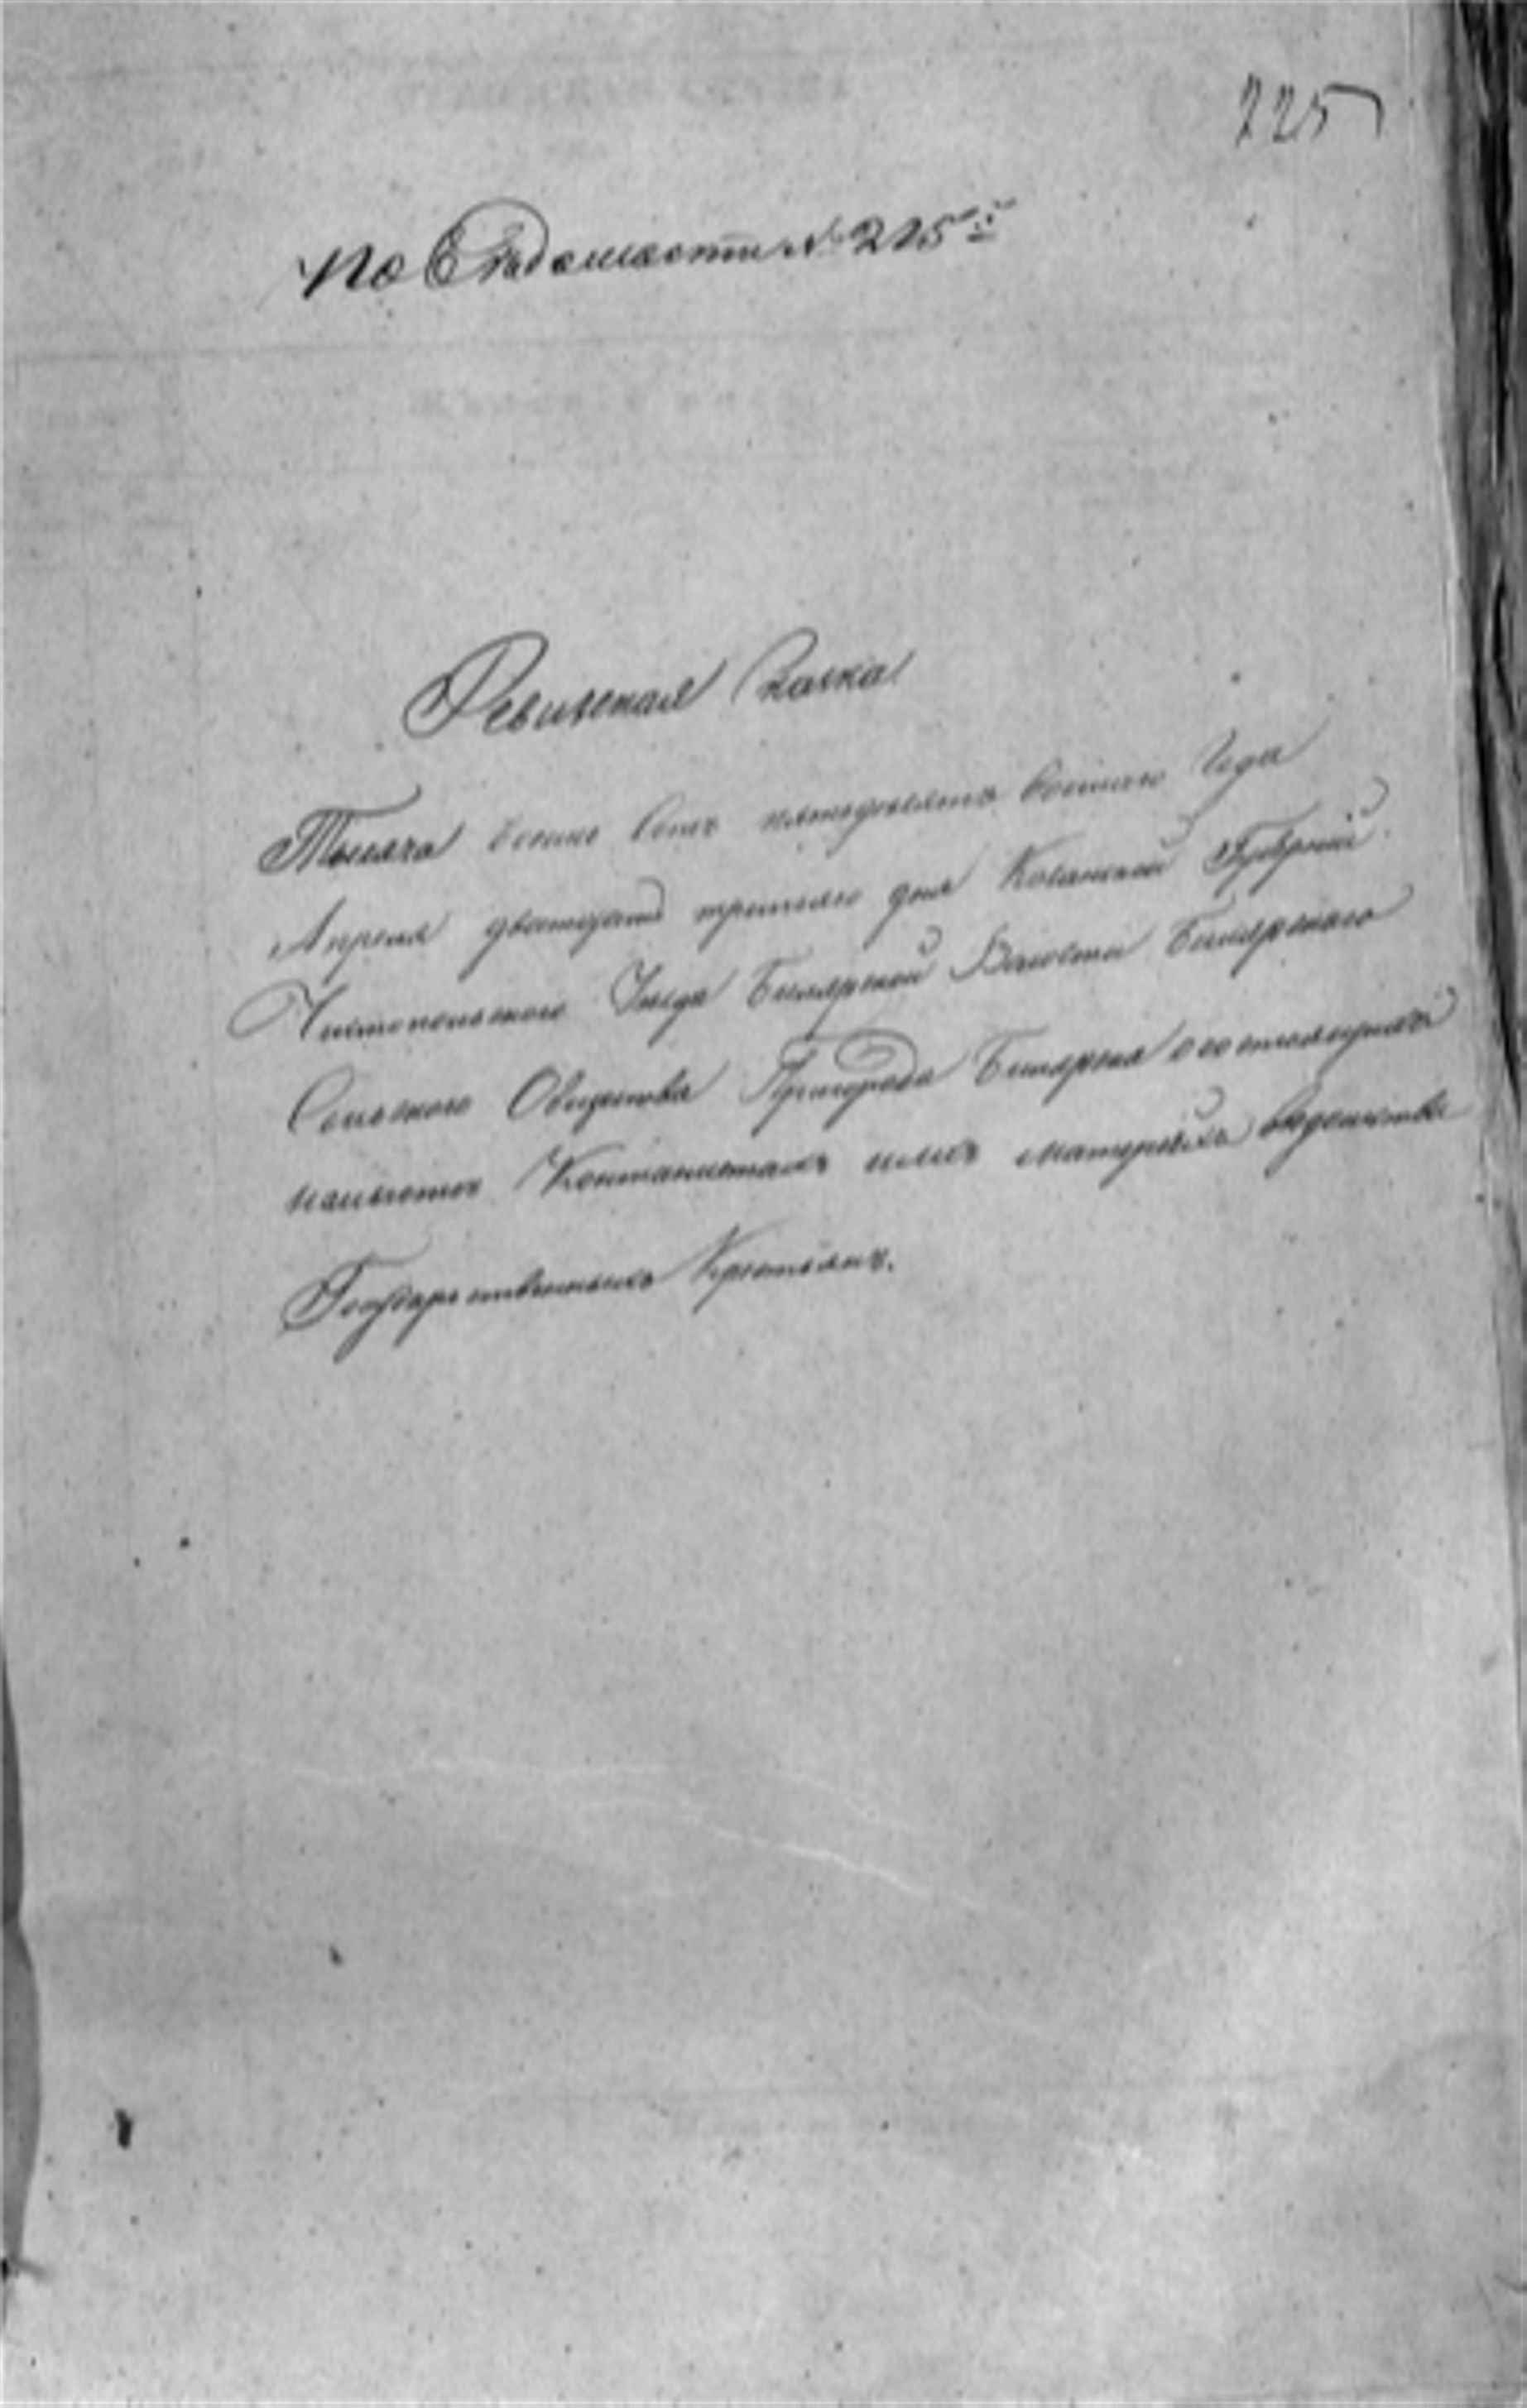 225
По Ведомости № 215й
Ревизская Сказка
Тысяча восемь сотъ пятьдесятъ восьмаго Года
Апреля дватцать третьяго дня Казанской Губернiи
Чистопольскаго Уезда Билярской Волости Билярскаго
Сельскаго Общества Пригорода Билярска о состоящихъ
на Кантонистахъ и матеряхъ ведомства
Государственныхъ Крестьянъ.